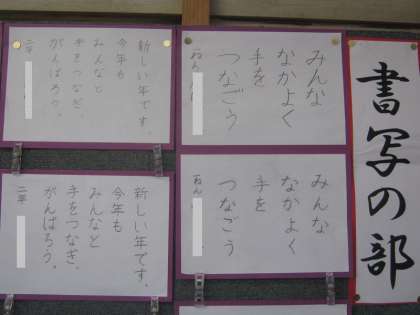 書写の部
みんな
なかよく
手を
つなごう
一ねん
みんな
なかよく
手を
つなごう
一ねん
新しい年です。
今年も
みんなと
手をつなぎ、
がんばろう。
二年
新しい年です。
今年も
みんなと
手をつなぎ、
がんばろう。
二年